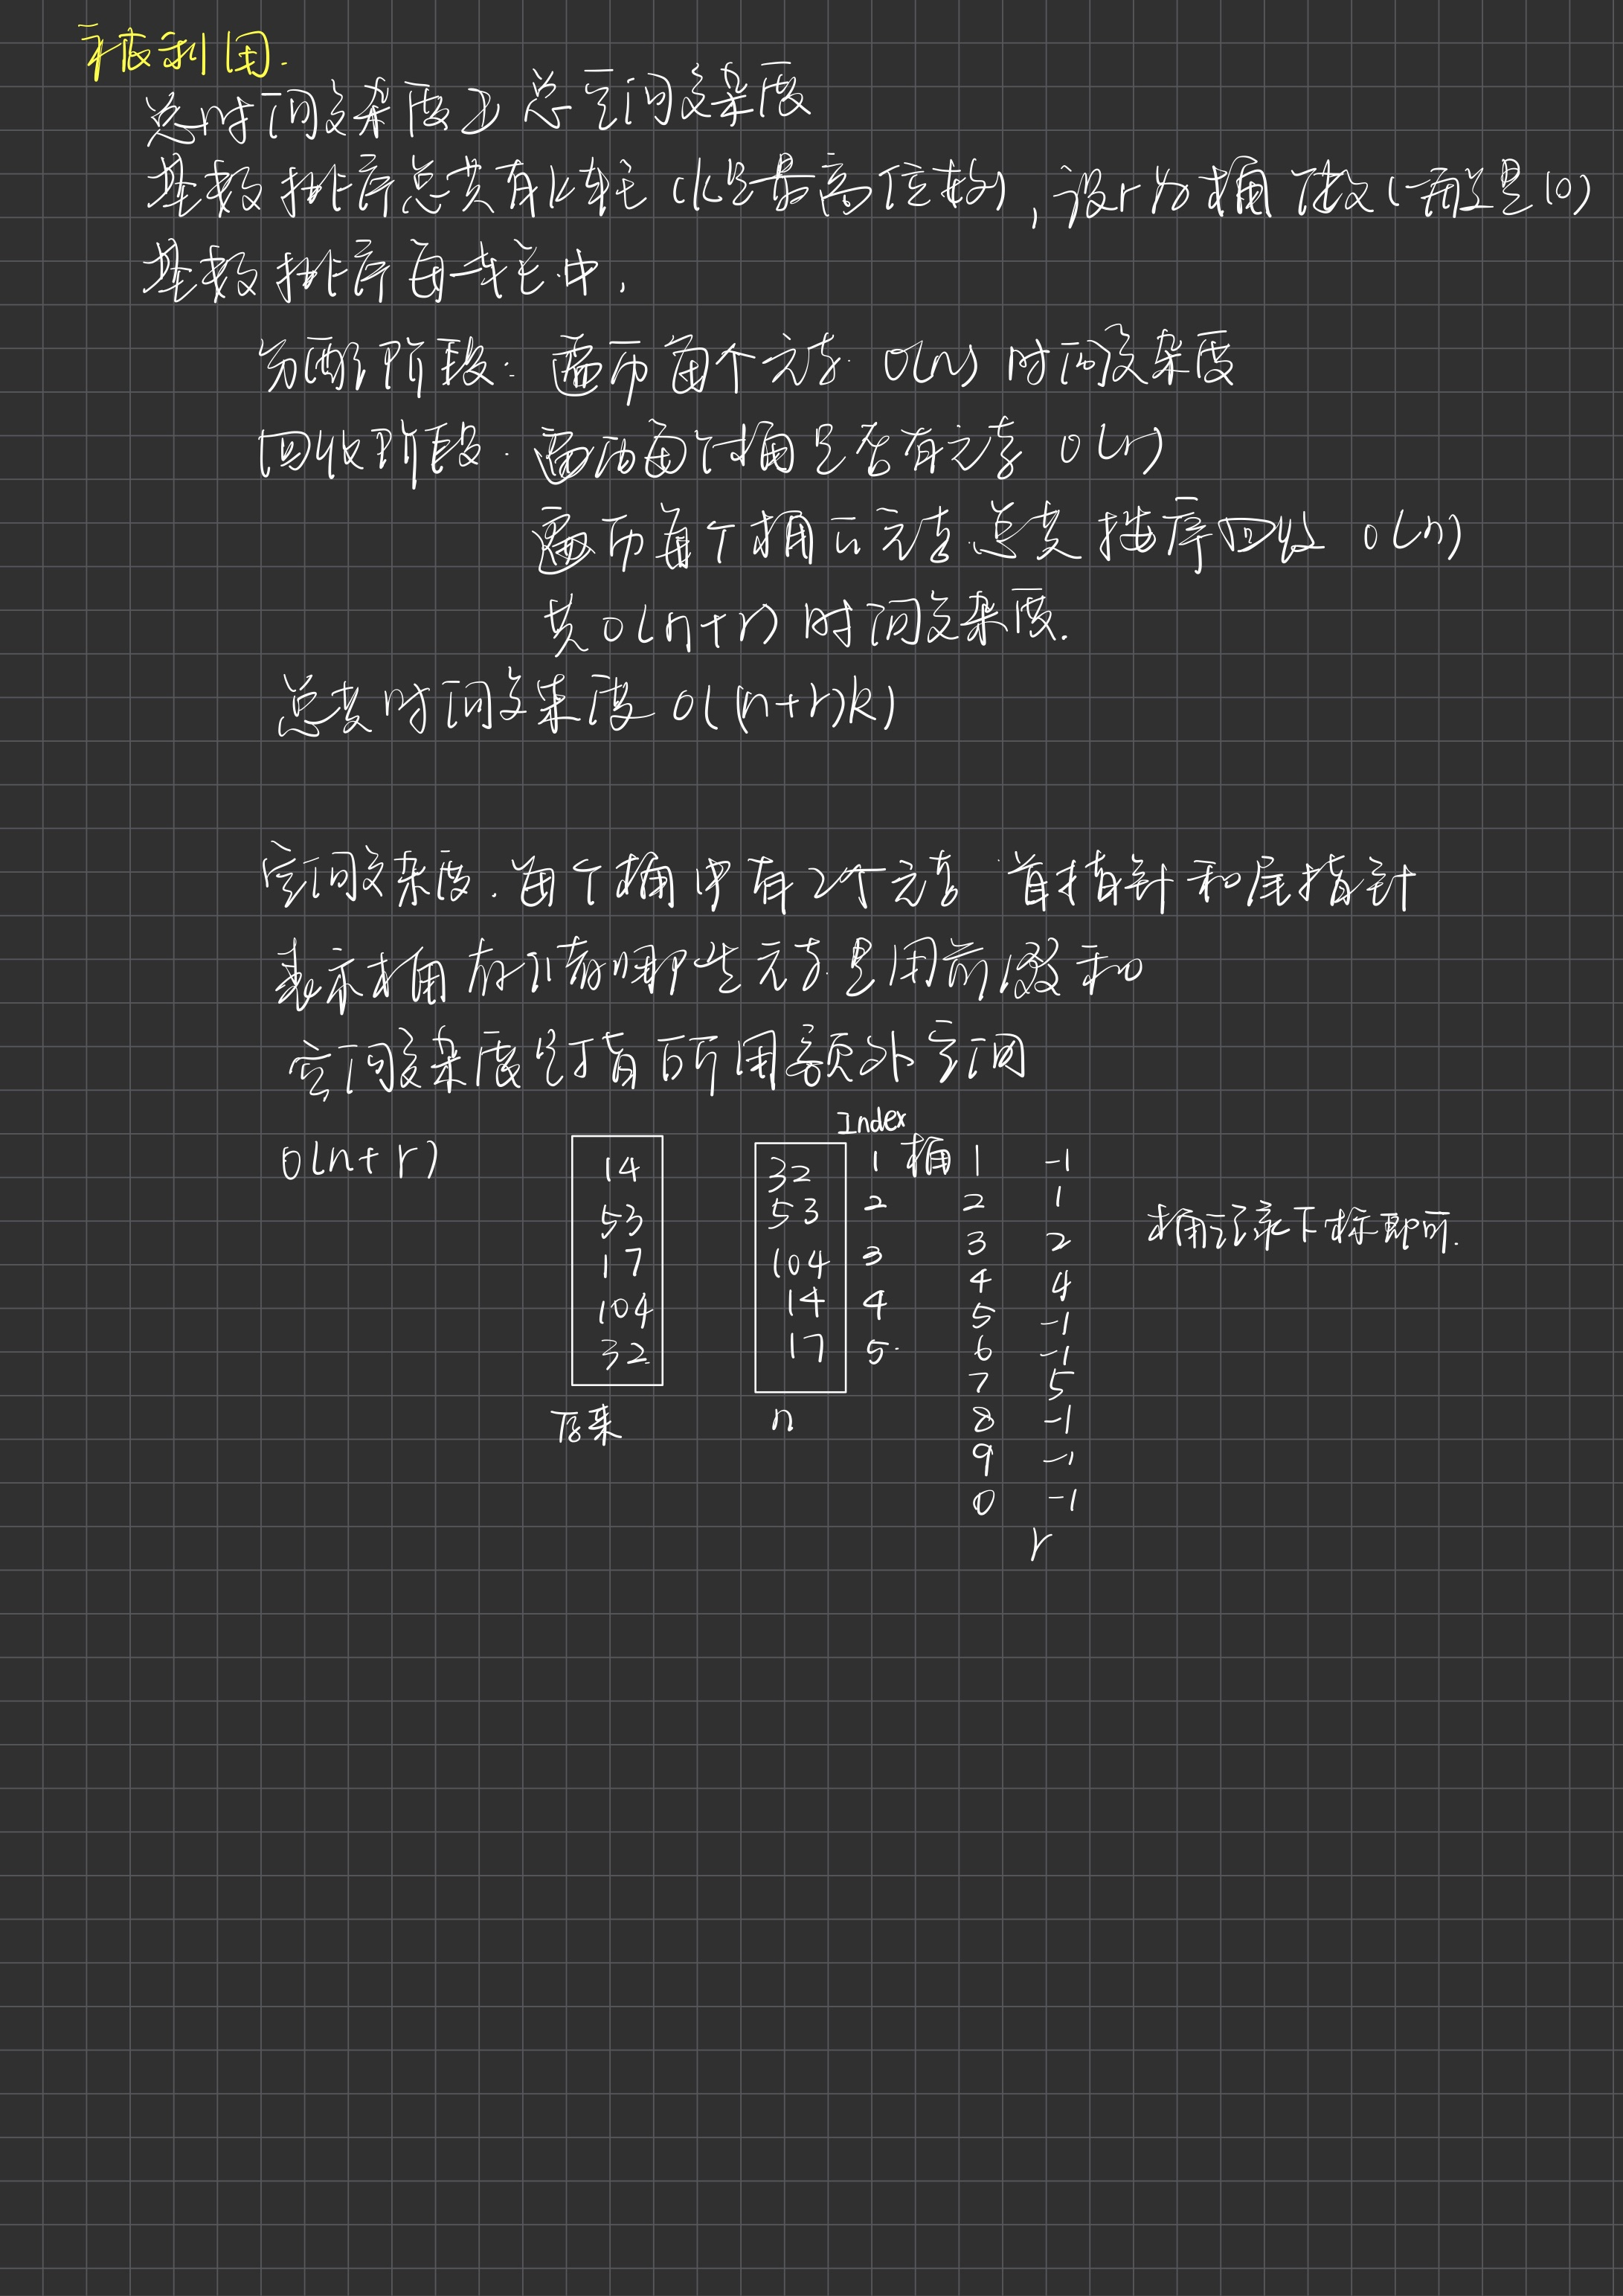 被利用.
总时间复杂度及总空间复杂度
基数排序总共有k轮(k是最高位数),设r为桶个数(一般是10)
基数排序每一轮中,
分配阶段:遍历每个元素. O(n) 时间复杂度
回收阶段.遍历每个桶是否有元素 O(r)
遍历每个桶 元素 总共 按序回收 O(n)
共 O(n+r) 时间复杂度.
总共时间复杂度 O((n+r)k)
空间复杂度.每个桶中有2个元素 首指针和尾指针
表示桶存储哪些元素是用前缀和
空间复杂度是指所用额外空间
O(n+r)
Index
14 32 1 桶 1 -1
53 53 2 2 1
17 104 3 3 2
104 14 4 4 4
32 17 5. 5 -1
6 -1
7 5
8 -1
9 -1
0 -1
桶记录下标即可.
原来 n
r